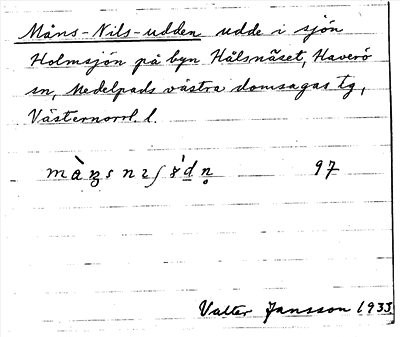 Måns-Nils-udden udde i sjön
Holmsjön på byn Hålsnäset, Haverö
sn, Medelpads västra domsagas tg,
Västernorrl. l.
97
Valter Jansson 1933